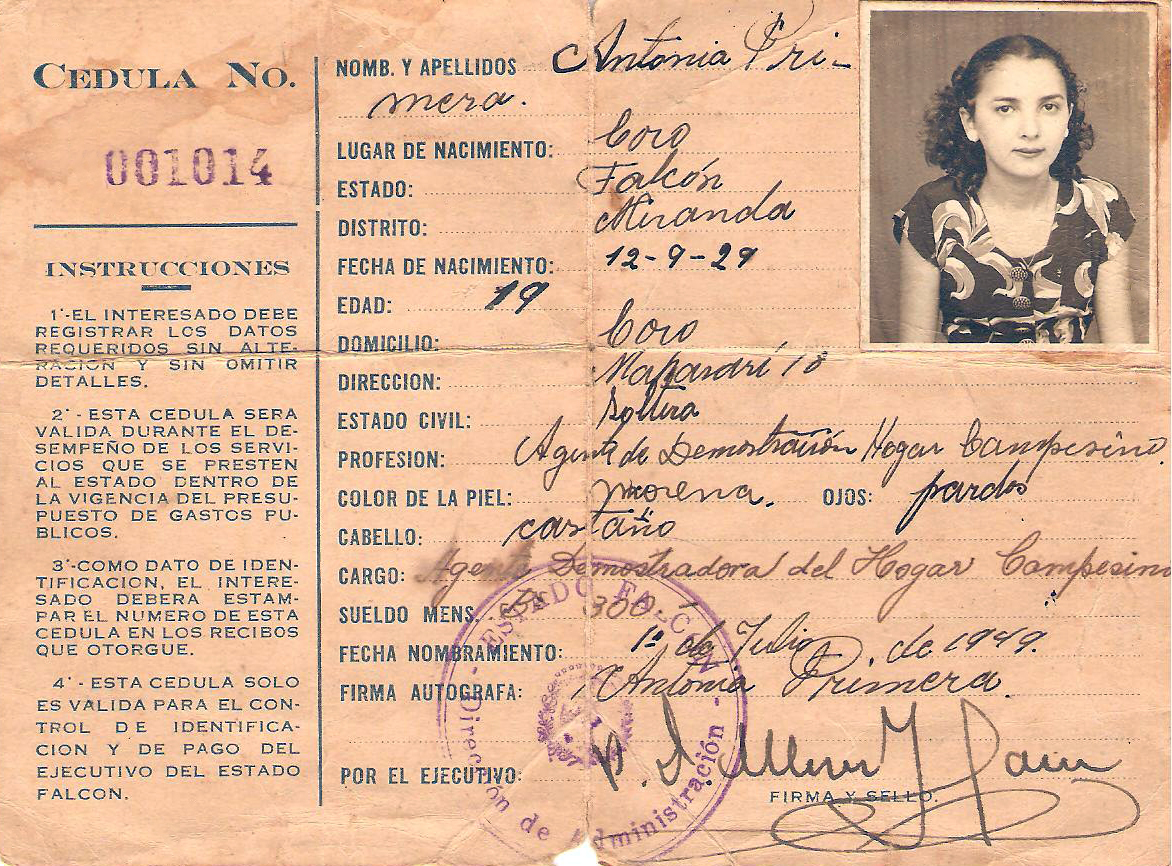 CEDULA No.
001014
INSTRUCCIONES
1'-EL INTERESADO DEBE
REGISTRAR LOS DATOS
REQUERIDOS SIN ALTE-
RACION Y SIN OMITIR
DETALLES.
2' - ESTA CEDULA SERA
VALIDA DURANTE EL DE-
SEMPEÑO DE LOS SERVI-
CIOS QUE SE PRESTEN
AL ESTADO DENTRO DE
LA VIGENCIA DEL PRESU-
PUESTO DE GASTOS PU-
BLICOS.
3'-COMO DATO DE IDEN-
TIFICACION, EL INTERE-
SADO DEBERA ESTAM-
PAR EL NUMERO DE ESTA
CEDULA EN LOS RECIBOS
QUE OTORGUE.
4' - ESTA CEDULA SOLO
ES VALIDA PARA EL CON-
TROL DE IDENTIFICA-
CION Y DE PAGO DEL
EJECUTIVO DEL ESTADO
FALCON.
NOMB. Y APELLIDOS Antonia Pri-
mera.
LUGAR DE NACIMIENTO: Coro
ESTADO: Falcón
DISTRITO: Miranda
FECHA DE NACIMIENTO: 12-9-29
EDAD: 19
DOMICILIO: Coro
DIRECCION: 18
ESTADO CIVIL: Soltera
PROFESION: Agente de Demostración Hogar Campesino.
COLOR DE LA PIEL: morena. OJOS: pardos
CABELLO: castaño
CARGO: Agente Demostradora del Hogar Campesino
SUELDO MENS. Bs 300.-
FECHA NOMBRAMIENTO: 1º de Julio, de 1949.
FIRMA AUTOGRAFA: Antonia Primera.
POR EL EJECUTIVO:
FIRMA Y SELLO.
ESTADO FALCON
- Dirección de Administración -